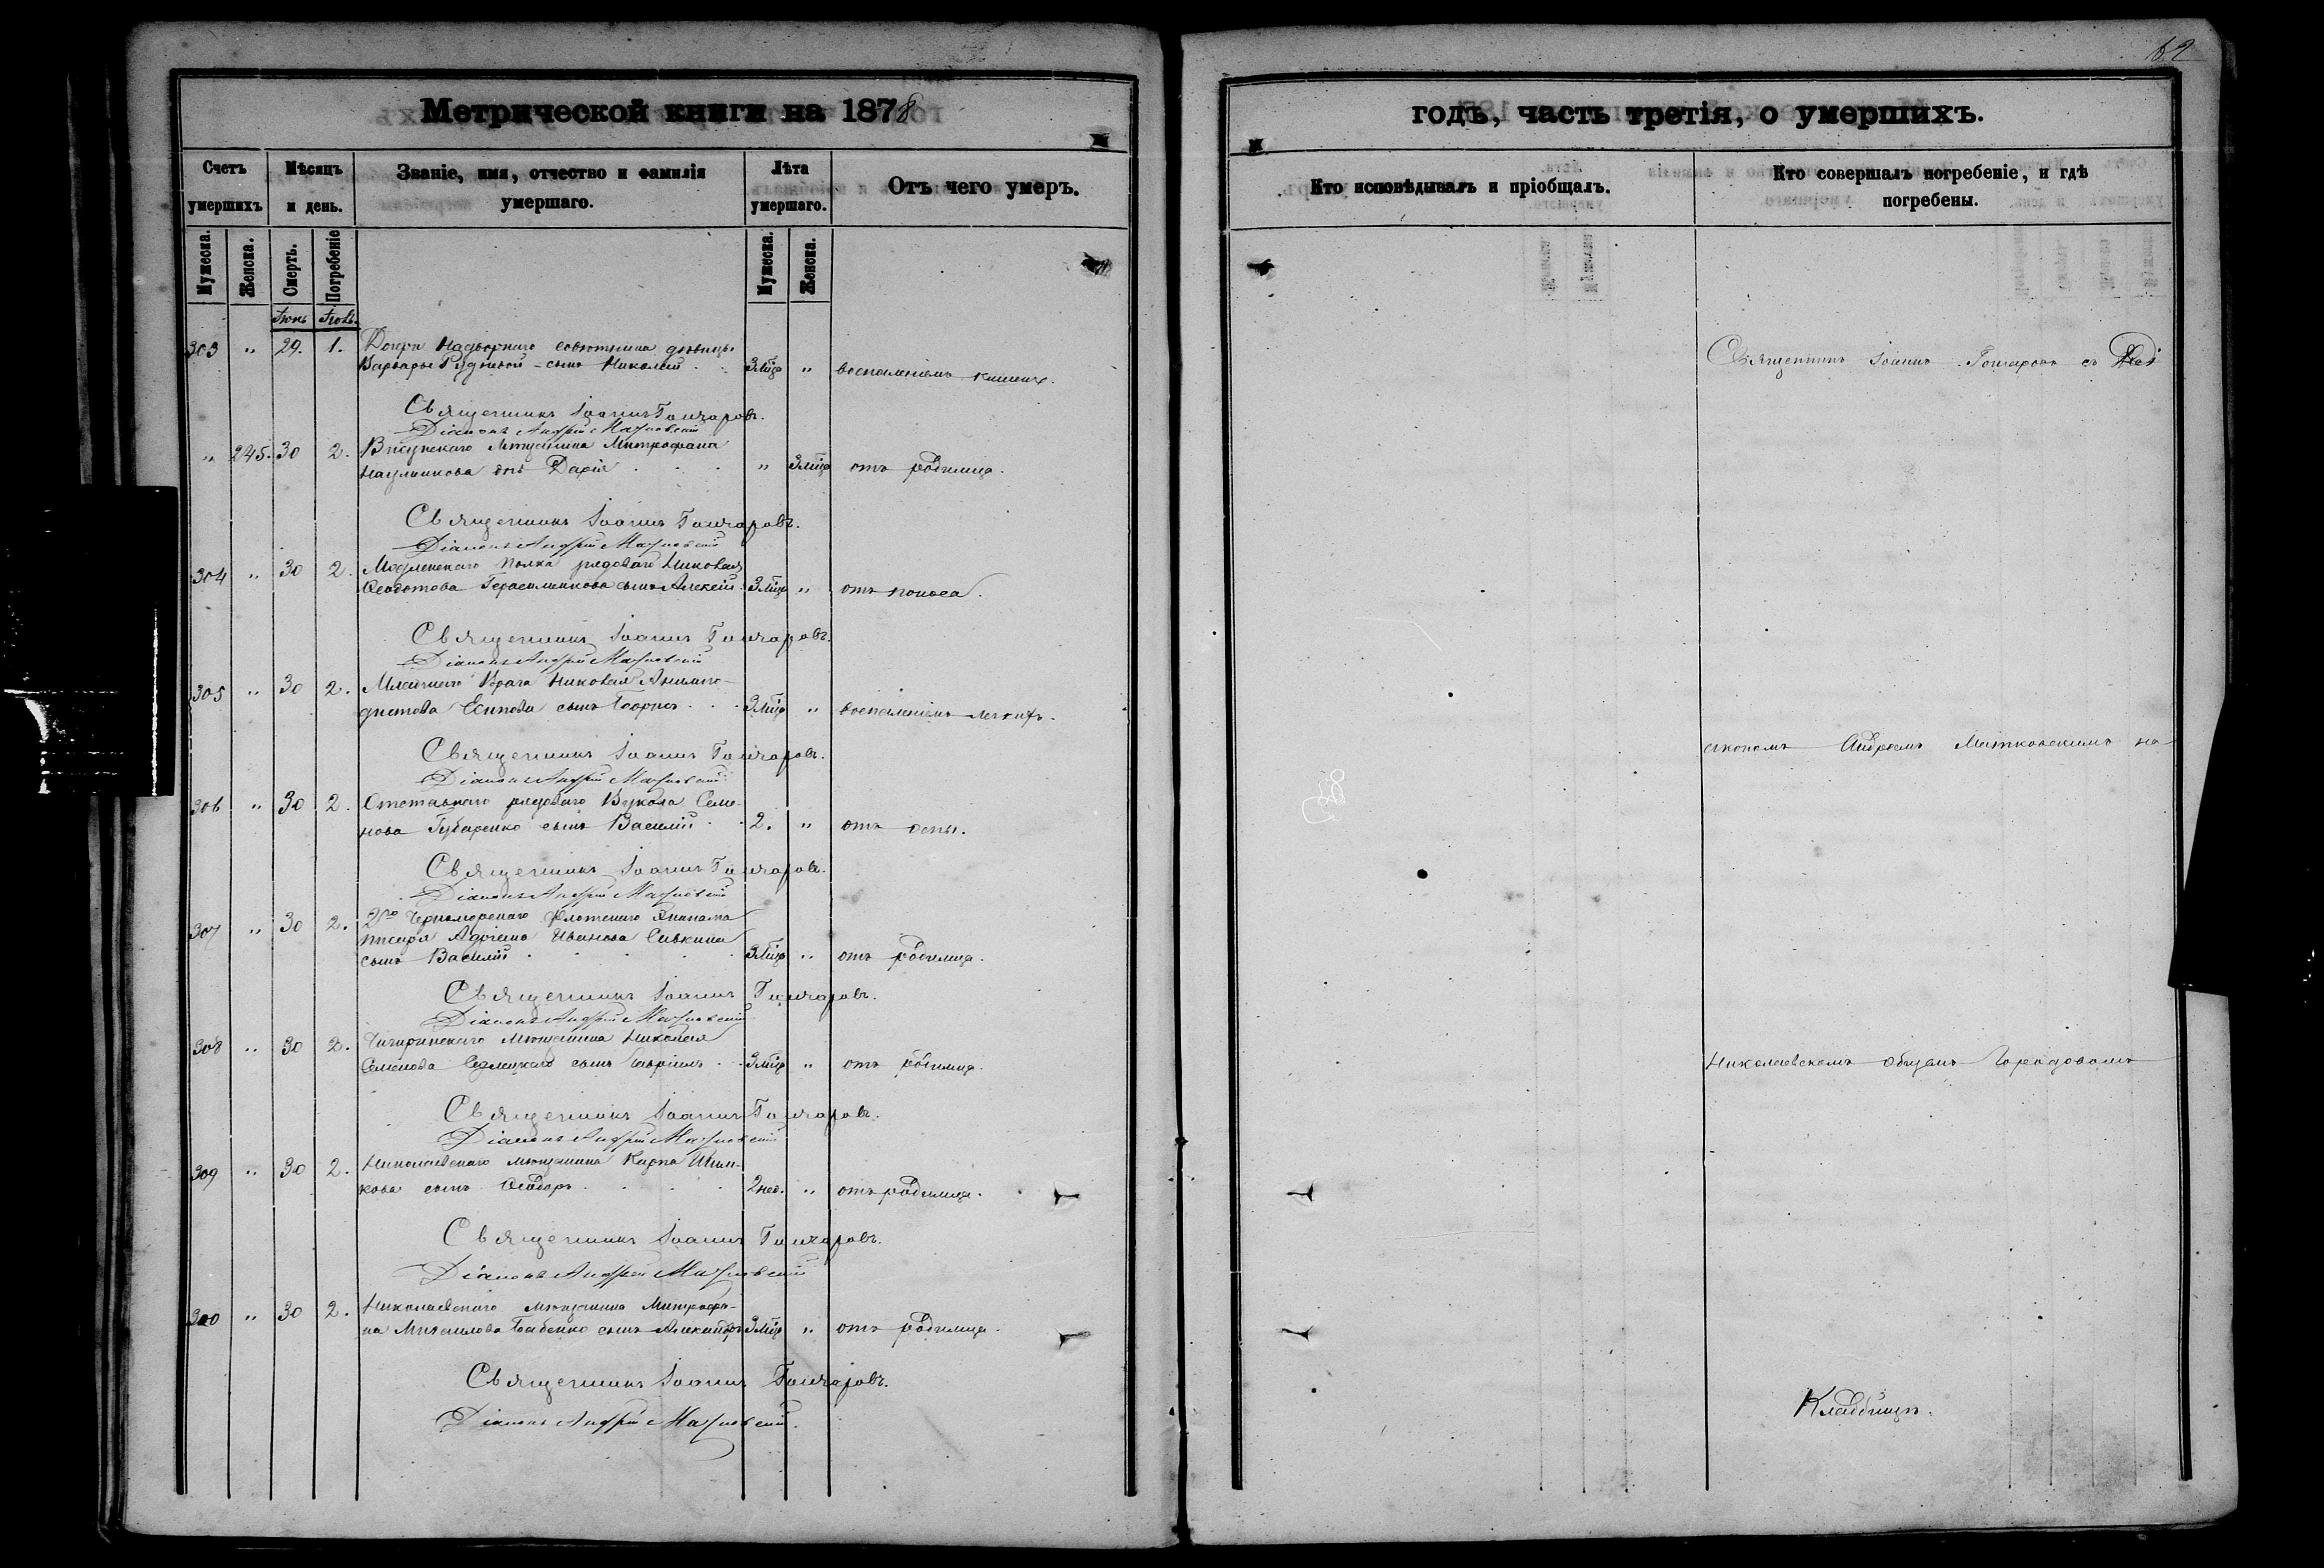 62
Метрической книги на 1878
годъ, часть третія, о умершихъ.
Счетъ умершихъ
Мѣсяцъ и день.
Званіе, имя, отчество и фамилія умершаго.
Лѣта умершаго.
Отъ чего умеръ.
Кто исповѣдывалъ и пріобщалъ.
Кто совершалъ погребеніе, и гдѣ погребены.
Мужеска. Женска. Смерть. Погребеніе Мужеска. Женска.
Іюнь Іюль.
303 " 29. 1. Дочери Надворнаго совѣтника дѣвицы
Варвары Рудневой - сынъ Николай 3 мѣц " воспаленіемъ кишекъ.
Священникъ Іоаннъ Гончаровъ.
Діаконъ Андрей
" 245. 30 2. мѣщанина Митрофана
Наумникова дчь Дарія " 3 мѣц отъ родимца.
Священникъ Іоаннъ Гончаровъ.
Діаконъ Андрей
304 " 30 2. полка рядоваго Николая
Ѳеодотова сынъ Алексій 3 мѣц " отъ поноса.
Священникъ Іоаннъ Гончаровъ.
Діаконъ Андрей
305 " 30 2. Младшаго Врача Николая
сынъ Георгій 3 мѣц " воспаленіемъ легкихъ.
Священникъ Іоаннъ Гончаровъ.
Діаконъ Андрей
306 " 30 2. Отставнаго рядоваго Вукола Семе-
нова Губаренко сынъ Василій 2. " отъ оспы.
Священникъ Іоаннъ Гончаровъ.
Діаконъ Андрей
307 " 30 2. 2го Черноморскаго Флотскаго Экипажа
писаря Адріана Иванова Сивкина
сынъ Василій 3 мѣц " отъ родимца.
Священникъ Іоаннъ Гончаровъ.
Діаконъ Андрей
308 " 30 2. Чигиринскаго мѣщанина Николая
Семенова Седлецкаго сынъ Гавріилъ 3 мѣц " отъ родимца.
Священникъ Іоаннъ Гончаровъ.
Діаконъ Андрей
309 " 30 2. Николаевскаго мѣщанина Карпа
кова сынъ Ѳеодоръ 2 нед. " отъ родимца.
Священникъ Іоаннъ Гончаровъ.
Діаконъ Андрей
" 30 2. Николаевскаго мѣщанина Митрофа-
на Михаилова Бабенко сынъ Александръ 3 мѣц " отъ родимца.
Священникъ Іоаннъ Гончаровъ.
Діаконъ Андрей
Священникъ Іоаннъ Гончаровъ съ Діа-
кономъ Андреемъ на
Николаевскомъ общемъ Городовомъ
Кладбищѣ.